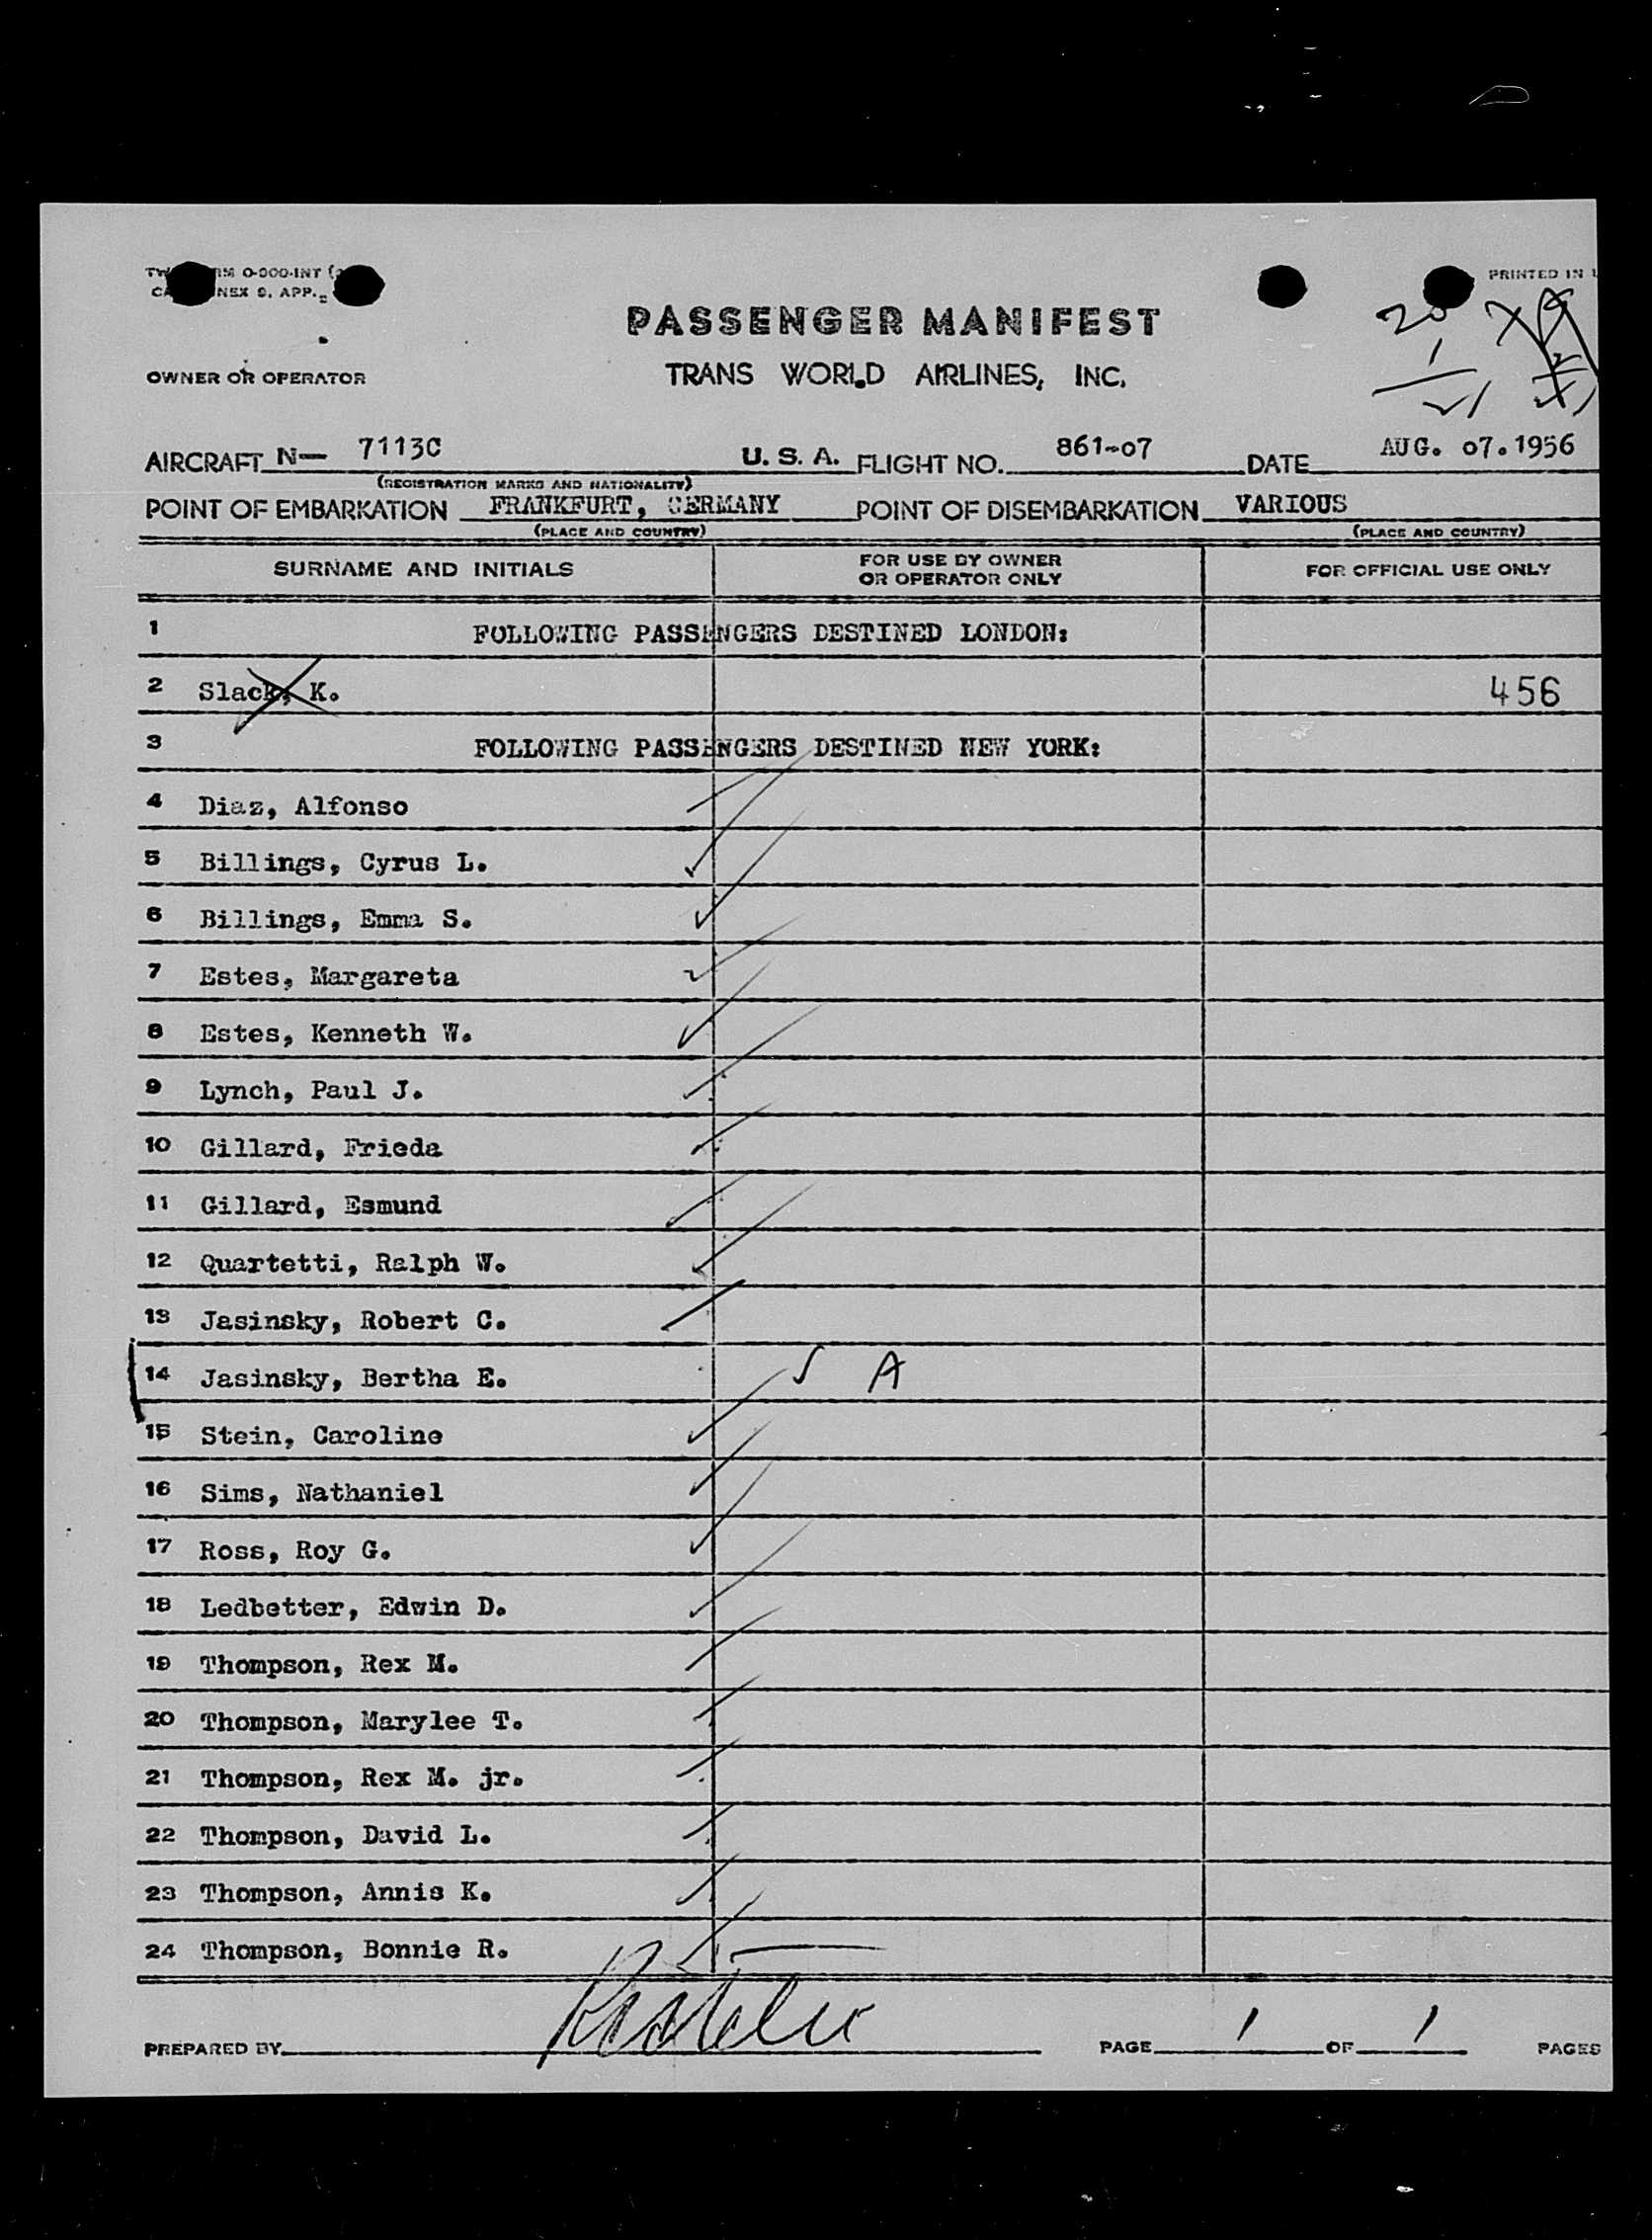 PRINTED IN
PASSENGER MANIFEST
OWNER OR OPERATOR
TRANS WORLD AIRLINES, INC.
20
1
21
AIRCRAFT N— 7113C U. S. A. FLIGHT NO. 861-07 DATE AUG. 07.1956
(REGISTRATION MARKS AND NATIONALITY)
POINT OF EMBARKATION FRANKFURT, GERMANY POINT OF DISEMBARKATION VARIOUS
(PLACE AND COUNTRY) (PLACE AND COUNTRY)
SURNAME AND INITIALS FOR USE BY OWNER OR OPERATOR ONLY FOR OFFICIAL USE ONLY
1 FOLLOWING PASSENGERS DESTINED LONDON:
2 Slack, K. 456
3 FOLLOWING PASSENGERS DESTINED NEW YORK:
4 Diaz, Alfonso
5 Billings, Cyrus L.
6 Billings, Emma S.
7 Estes, Margareta
8 Estes, Kenneth W.
9 Lynch, Paul J.
10 Gillard, Frieda
11 Gillard, Esmund
12 Quartetti, Ralph W.
13 Jasinsky, Robert C.
14 Jasinsky, Bertha E. ✓ A
15 Stein, Caroline
16 Sims, Nathaniel
17 Ross, Roy G.
18 Ledbetter, Edwin D.
19 Thompson, Rex M.
20 Thompson, Marylee T.
21 Thompson, Rex M. jr.
22 Thompson, David L.
23 Thompson, Annis K.
24 Thompson, Bonnie R.
PREPARED BY PAGE 1 OF 1 PAGES